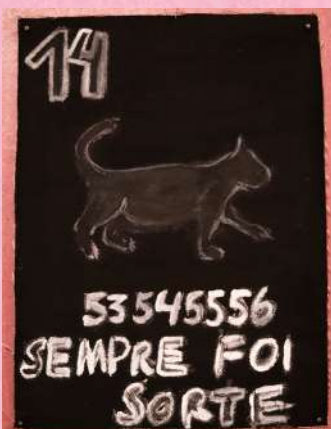 14
53545556
SEMPRE FOI
SORTE